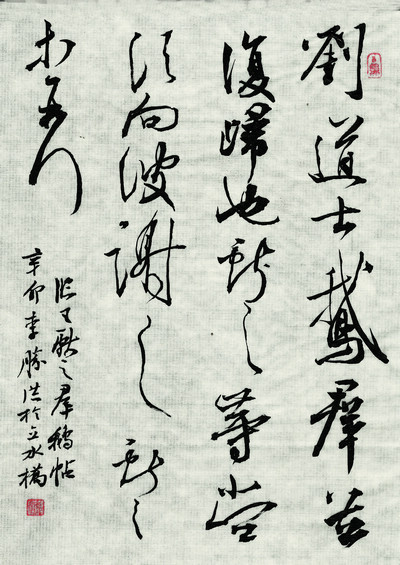 劉道士鵝群並
復歸也獻之等當
須向彼謝之獻之
等再拜
臨王獻之群鵝帖
辛卯李勝洪於立水橋